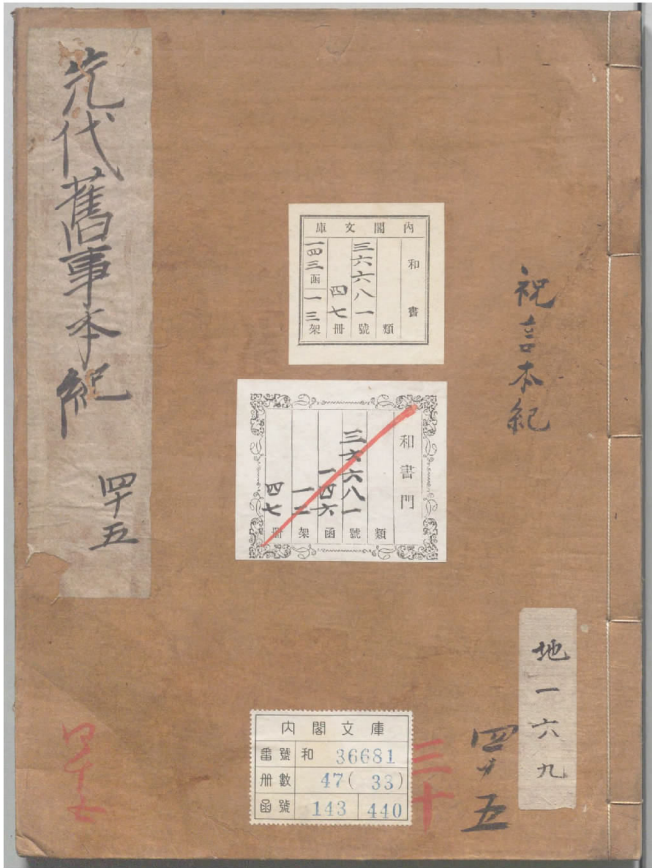 先代舊事本紀
四十五
祝言本紀
內閣文庫
和書
三六六八一號
類
四七冊
一四三函
一三架
和書門
類
三六六八一號
一四六函
一二架
四七冊
地一六九
四十五
三十
四十七
内閣文庫
番號 和 36681
冊數 47(33)
函號 143 440